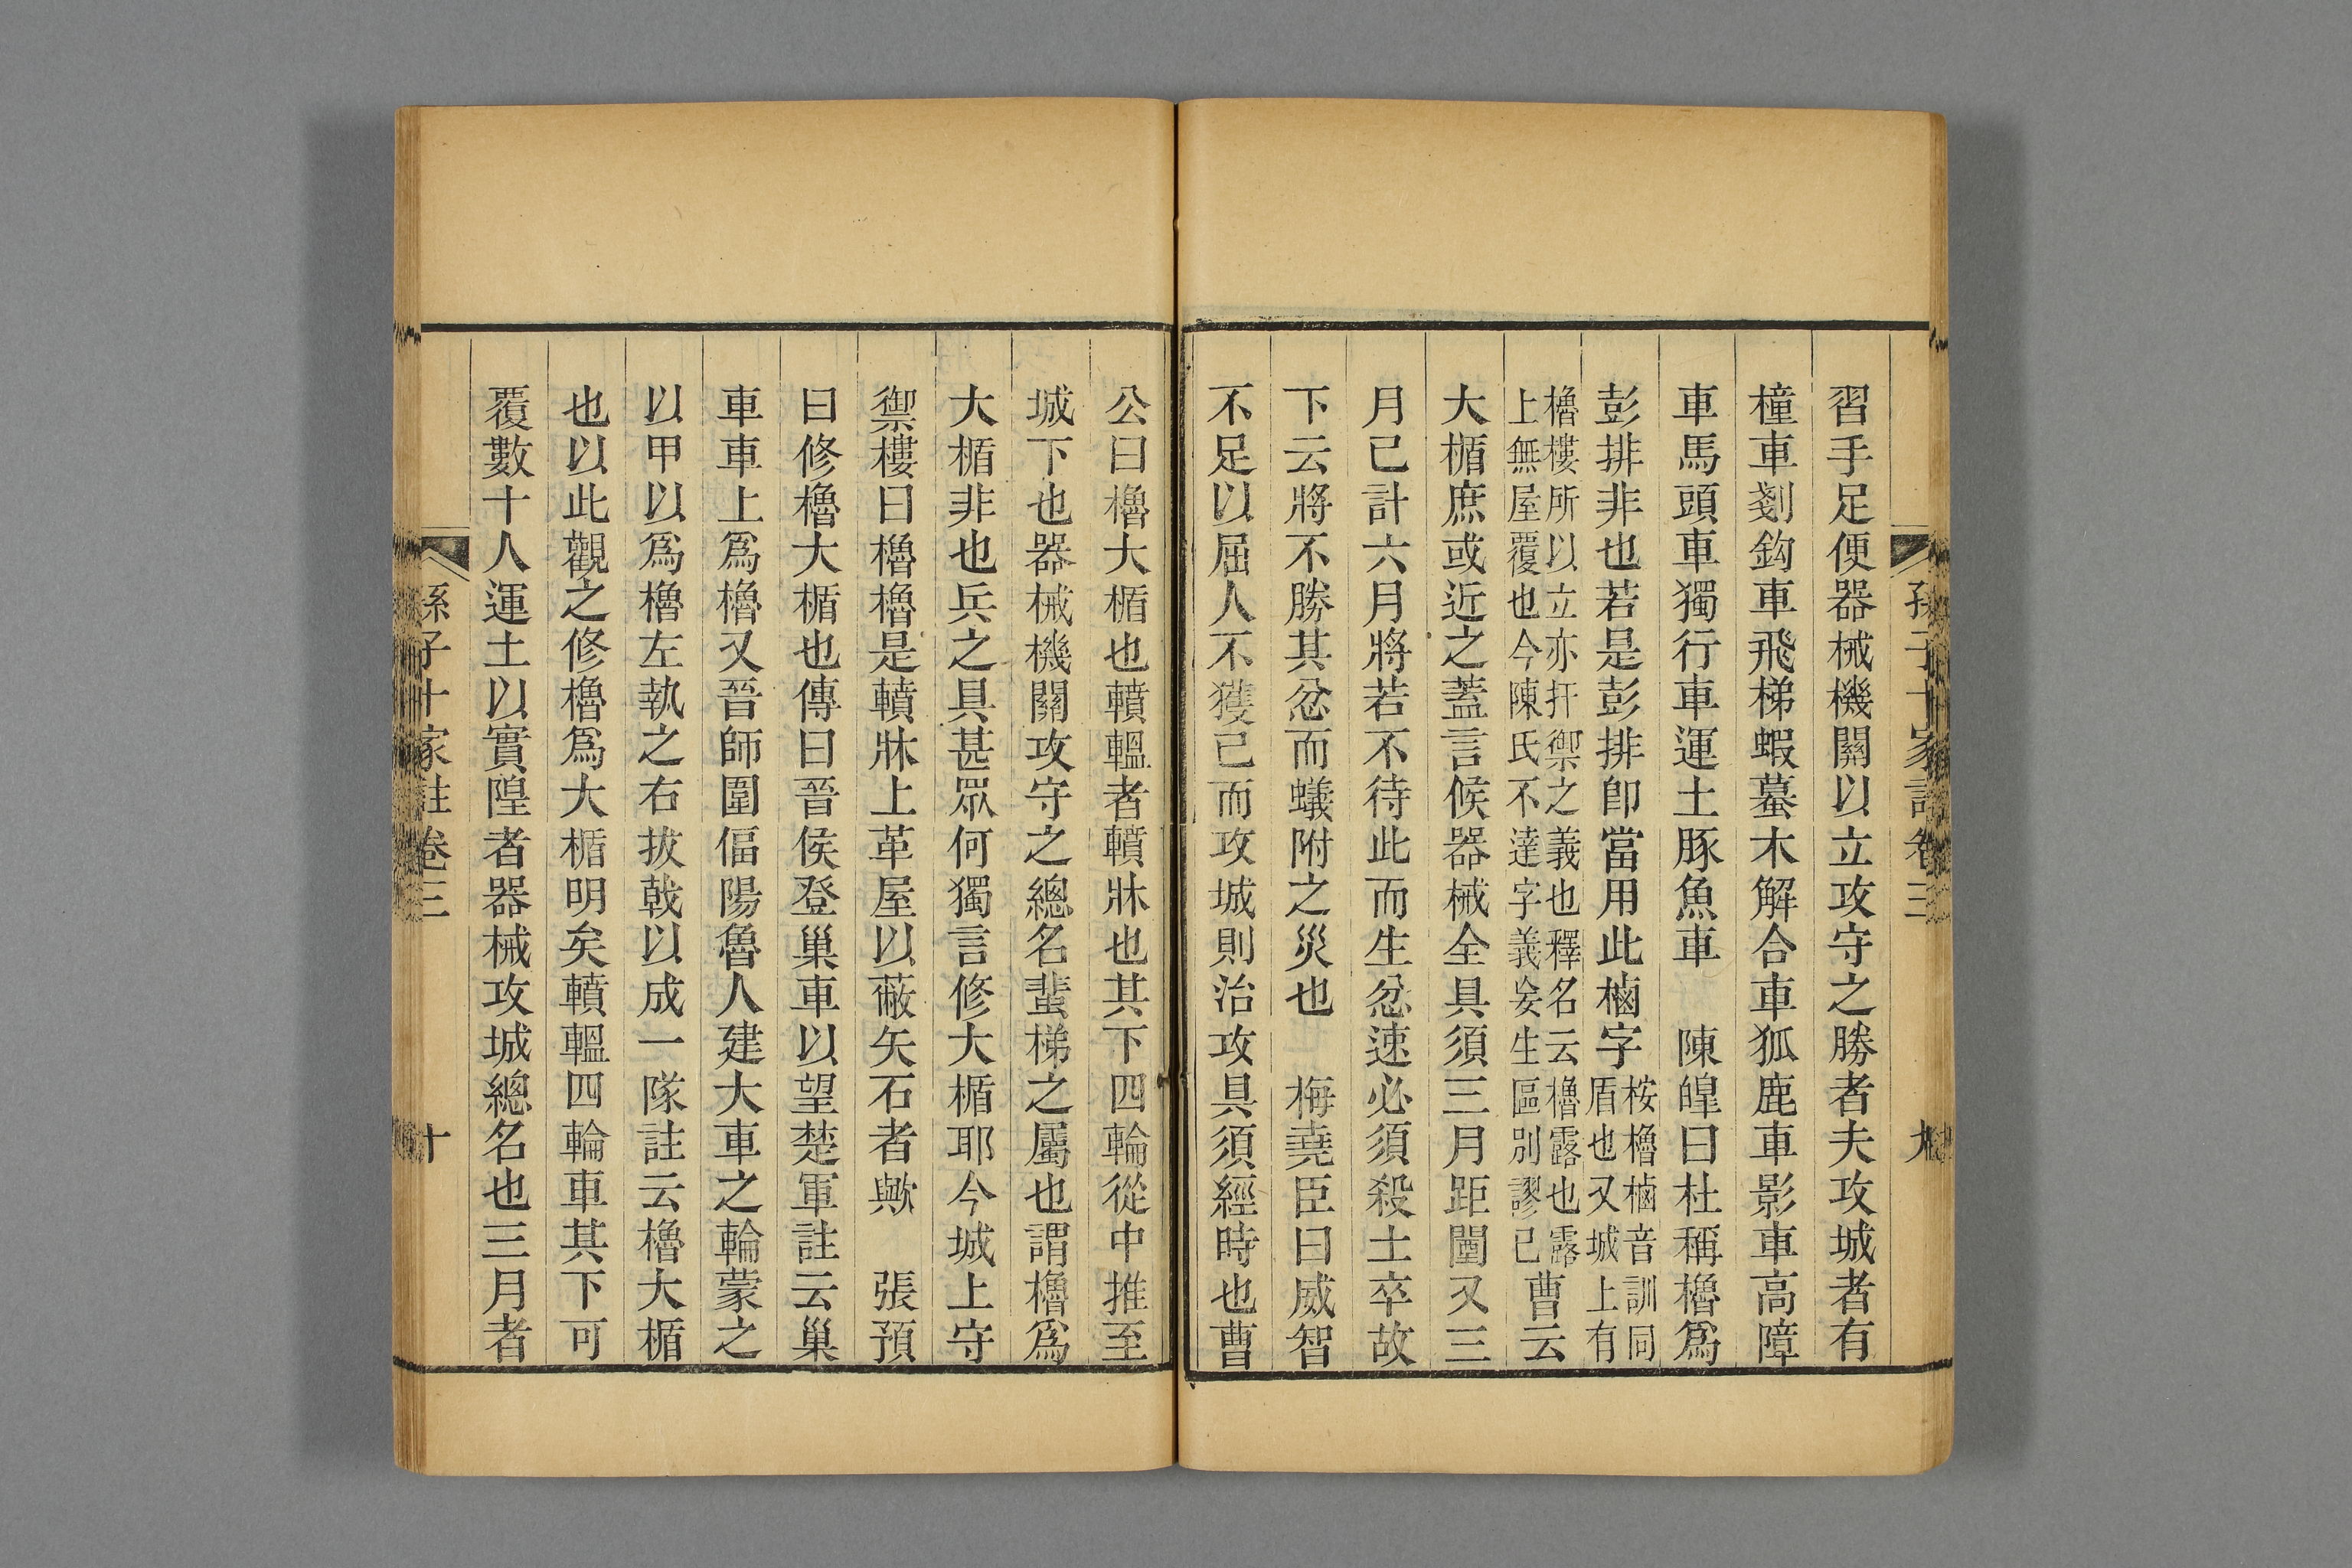 孫子十家註卷三 九
習手足便器械機關以立攻守之勝者夫攻城者有
橦車剗鈎車飛梯蝦蟇木解合車狐鹿車影車高障
車馬頭車獨行車運土豚魚車 陳皥曰杜稱櫓爲
彭排非也若是彭排卽當用此樐字桉櫓樐音訓同盾也又城上有
櫓樓所以立亦扞禦之義也釋名云櫓露也露上無屋覆也今陳氏不達字義妄生區別謬已曹云
大楯庶或近之蓋言候器械全具須三月距闉又三
月已計六月將若不待此而生忿速必須殺士卒故
下云將不勝其忿而蟻附之災也 梅堯臣曰威智
不足以屈人不獲已而攻城則治攻具須經時也曹
公曰櫓大楯也轒轀者轒牀也其下四輪從中推至
城下也器械機關攻守之總名蜚梯之屬也謂櫓爲
大楯非也兵之具甚眾何獨言修大楯耶今城上守
禦樓曰櫓櫓是轒牀上革屋以蔽矢石者歟 張預
曰修櫓大楯也傳曰晉侯登巢車以望楚軍註云巢
車車上爲櫓又晉師圍偪陽魯人建大車之輪蒙之
以甲以爲櫓左執之右拔戟以成一隊註云櫓大楯
也以此觀之修櫓爲大楯明矣轒轀四輪車其下可
覆數十人運土以實隍者器械攻城總名也三月者
孫子十家註卷三 十